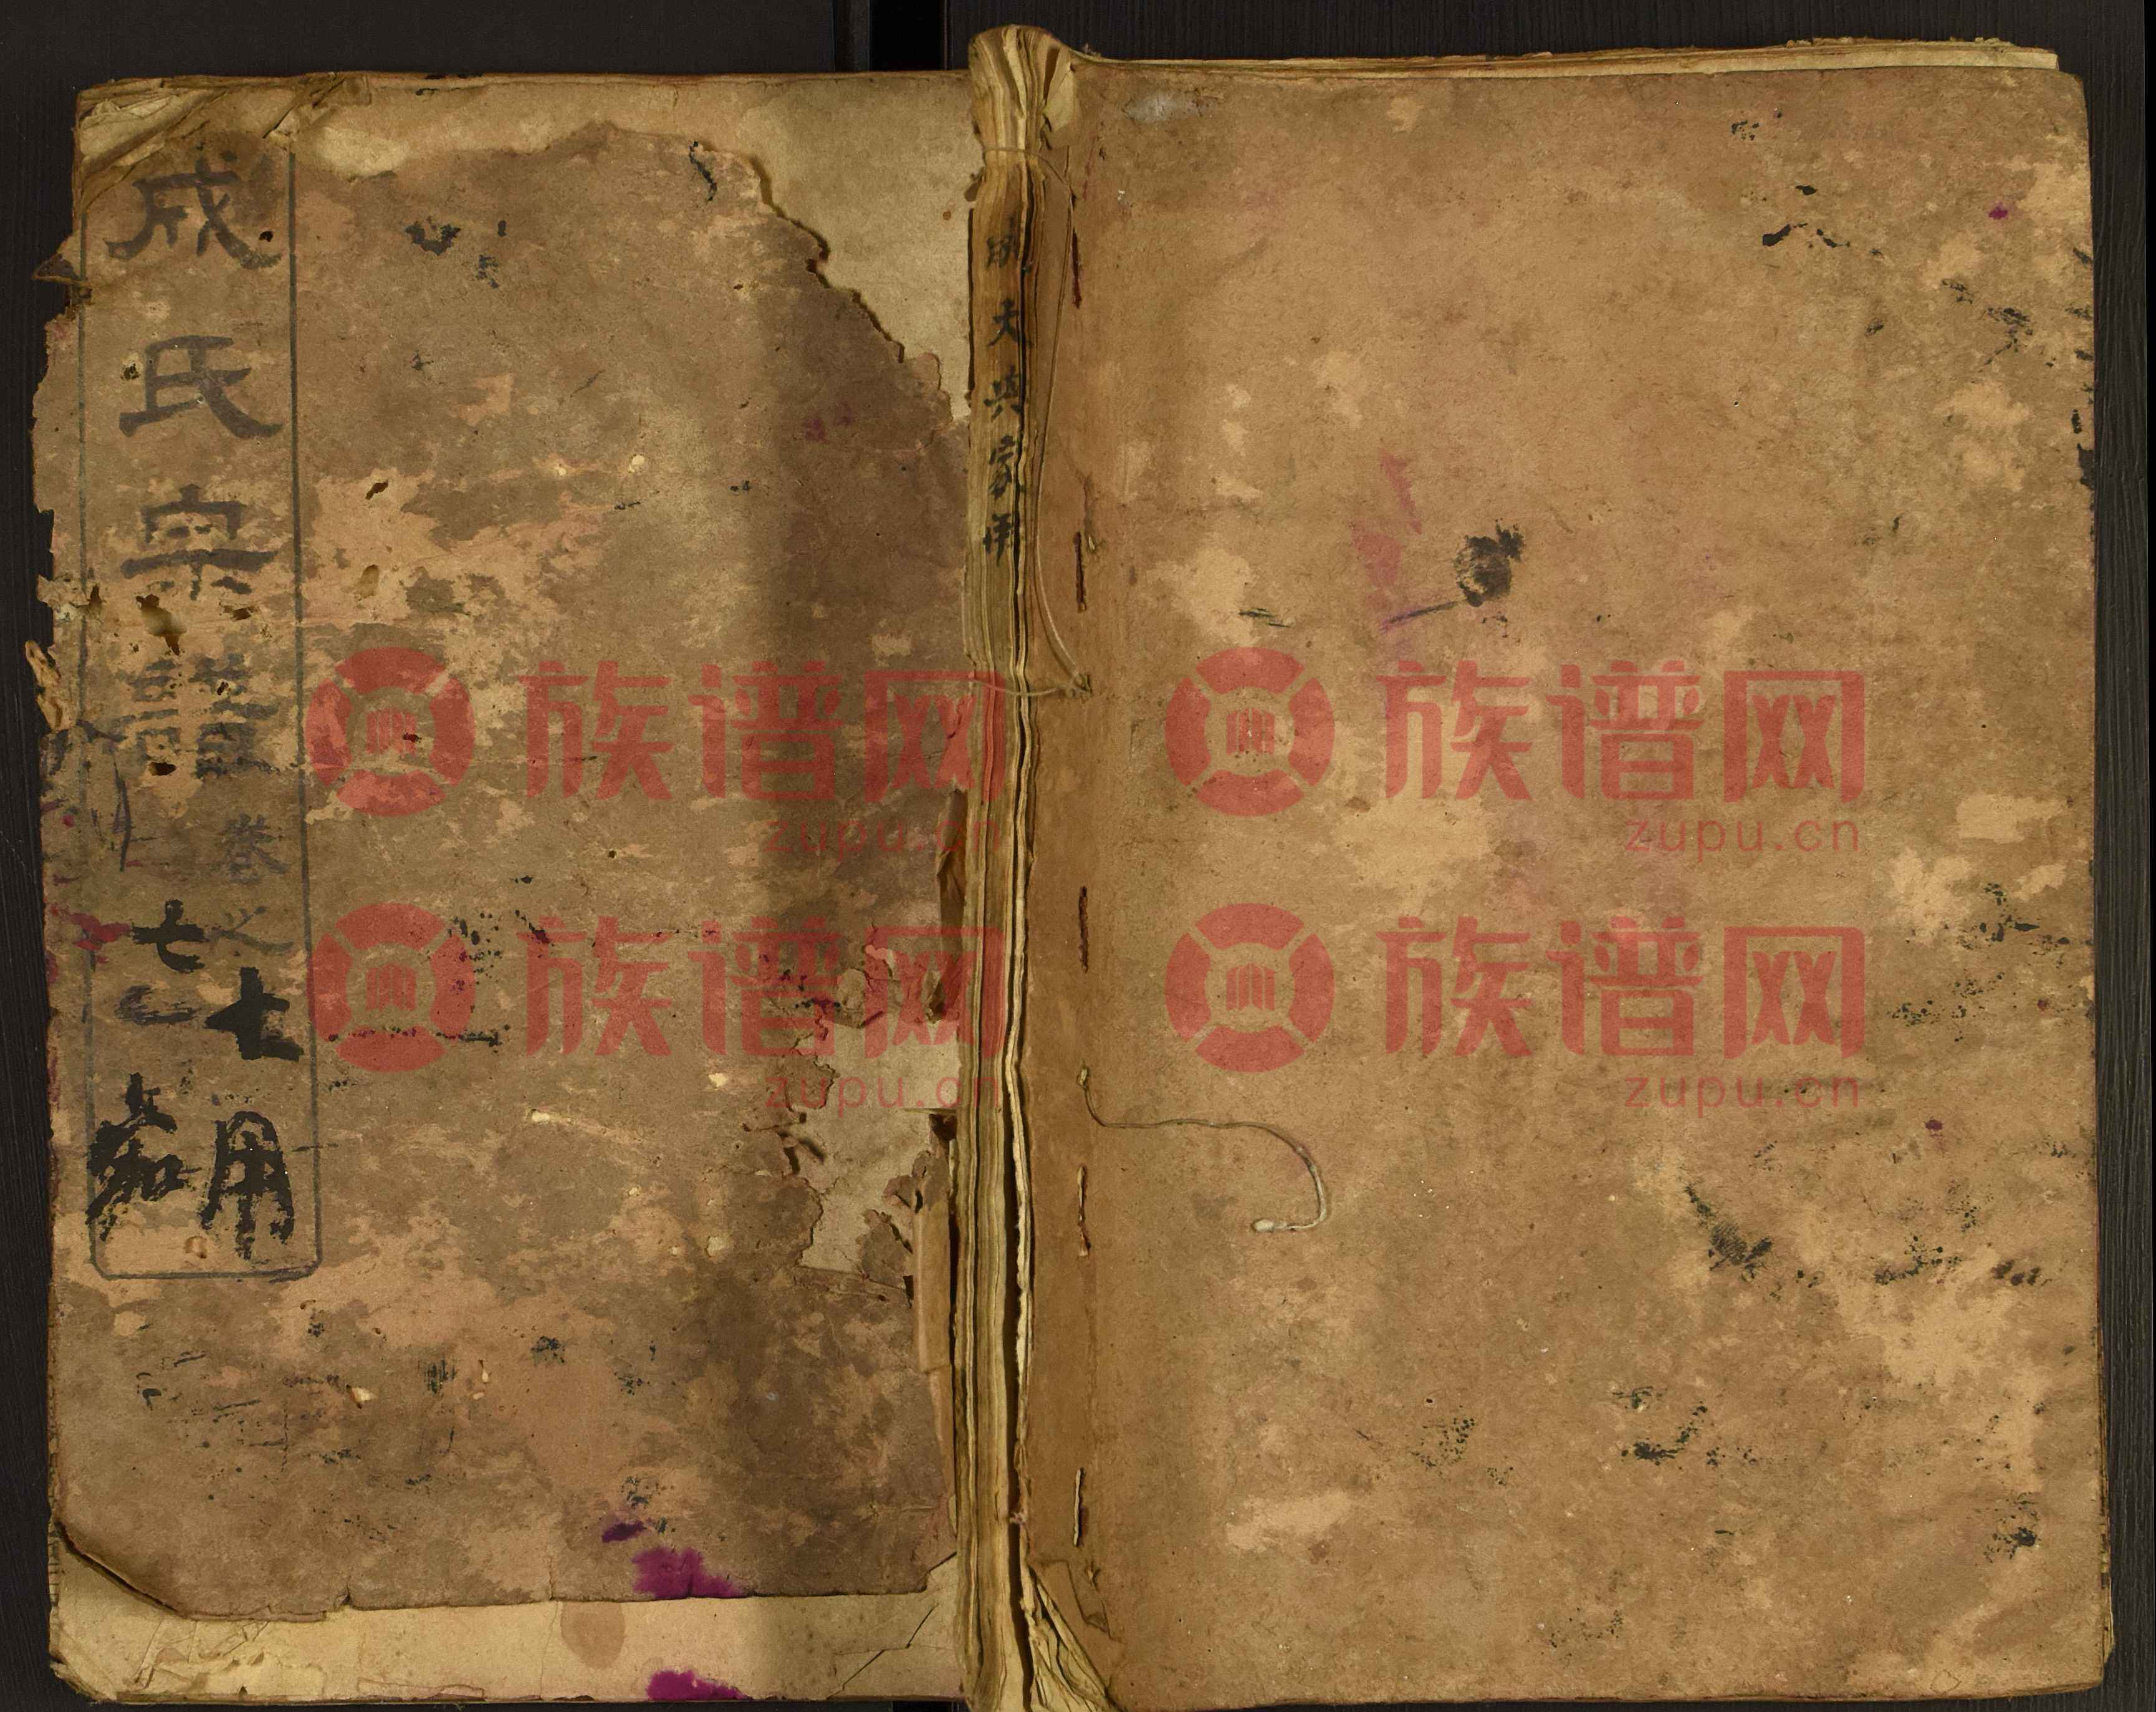 成氏宗譜卷之七
七
用
成大興家用
族谱网
zupu.cn
族谱网
zupu.cn
族谱网
zupu.cn
族谱网
zupu.cn